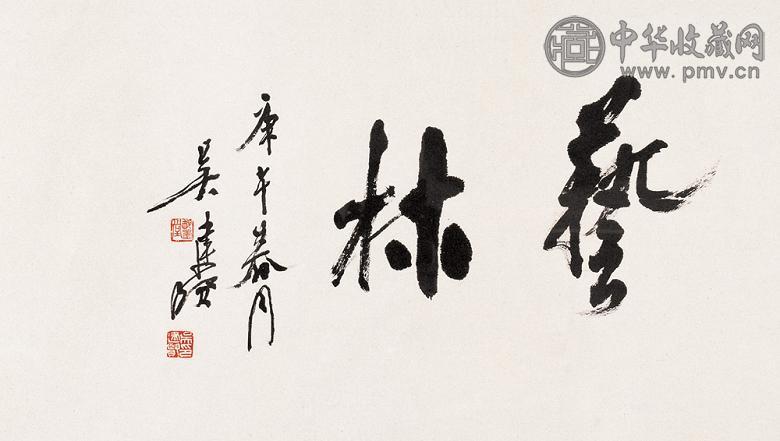 藝林
庚午春月
吴建贤
中华收藏网
www.pmv.cn